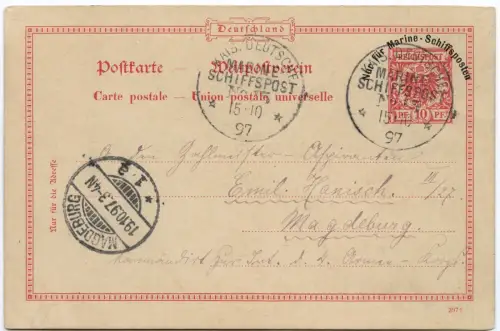 Deutschland
Nur für Marine-Schiffsposten
Postkarte Weltpostverein
Carte postale — Union postale universelle
KAIS. DEUTSCHE
MARINE-
SCHIFFSPOST
15-10
97
KAIS. DEUTSCHE
MARINE-
SCHIFFSPOST
15-10
97
REICHSPOST
10 PF
Nur für die Adresse
An den Zahlmeister-Aspiranten
Emil Hanisch
Magdeburg.
kommandirt zur Int. d. 4. Armee-Korps.
MAGDEBURG
19.10.97.3-4N
* 1.